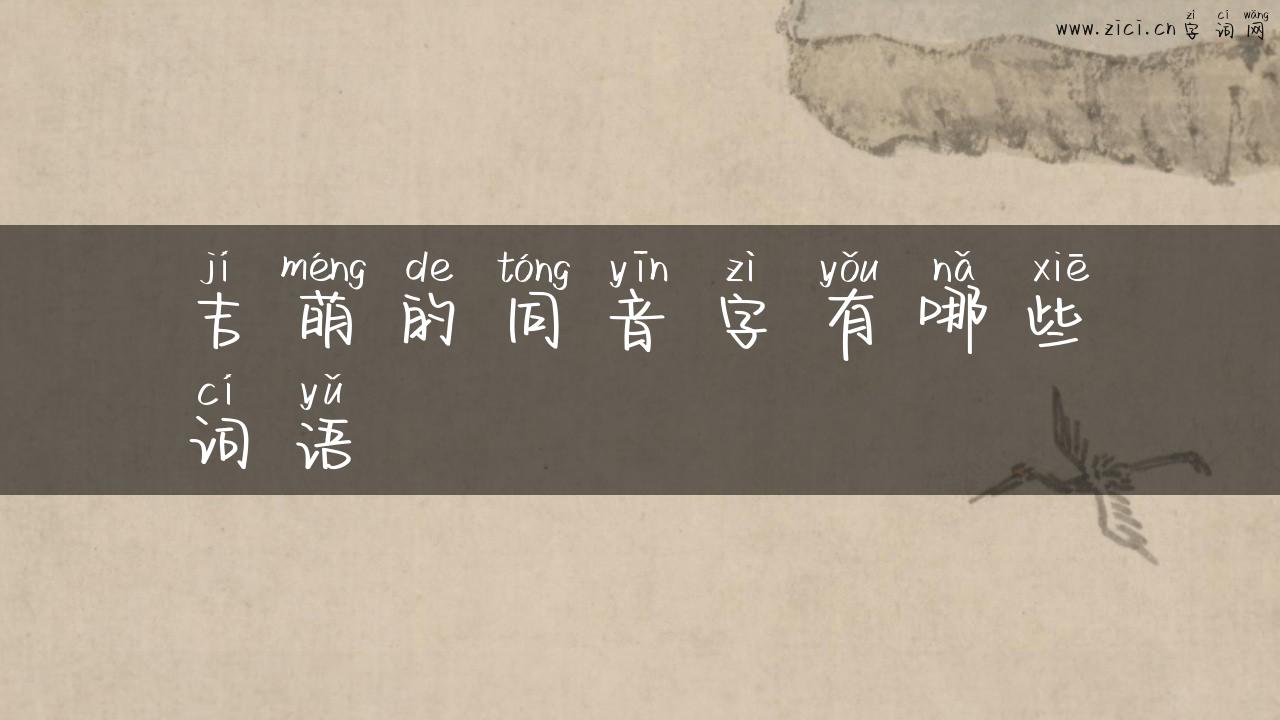 zì cí wǎng
www.zici.cn 字词网
jí méng de tóng yīn zì yǒu nǎ xiē
吉萌的同音字有哪些
cí yǔ
词语